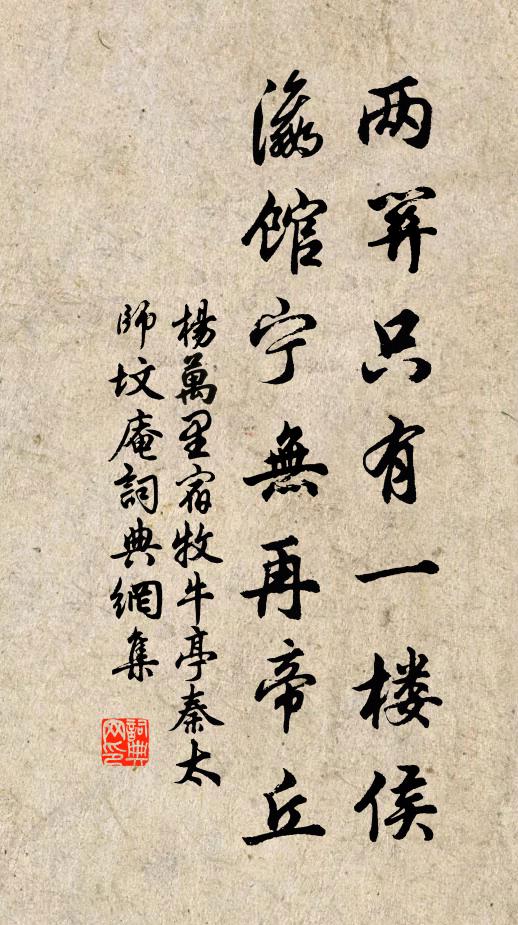 两关只有一楼侯
瀛馆宁無再帝丘
楊萬里宿牧牛亭秦太
師坟庵詞典網集
詞典网印